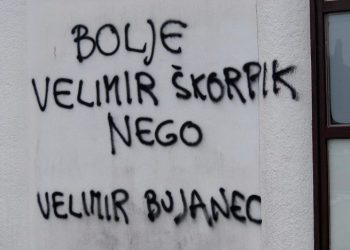 BOLJE
VELIMIR ŠKORPIK
NEGO
VELIMIR BUJANEC